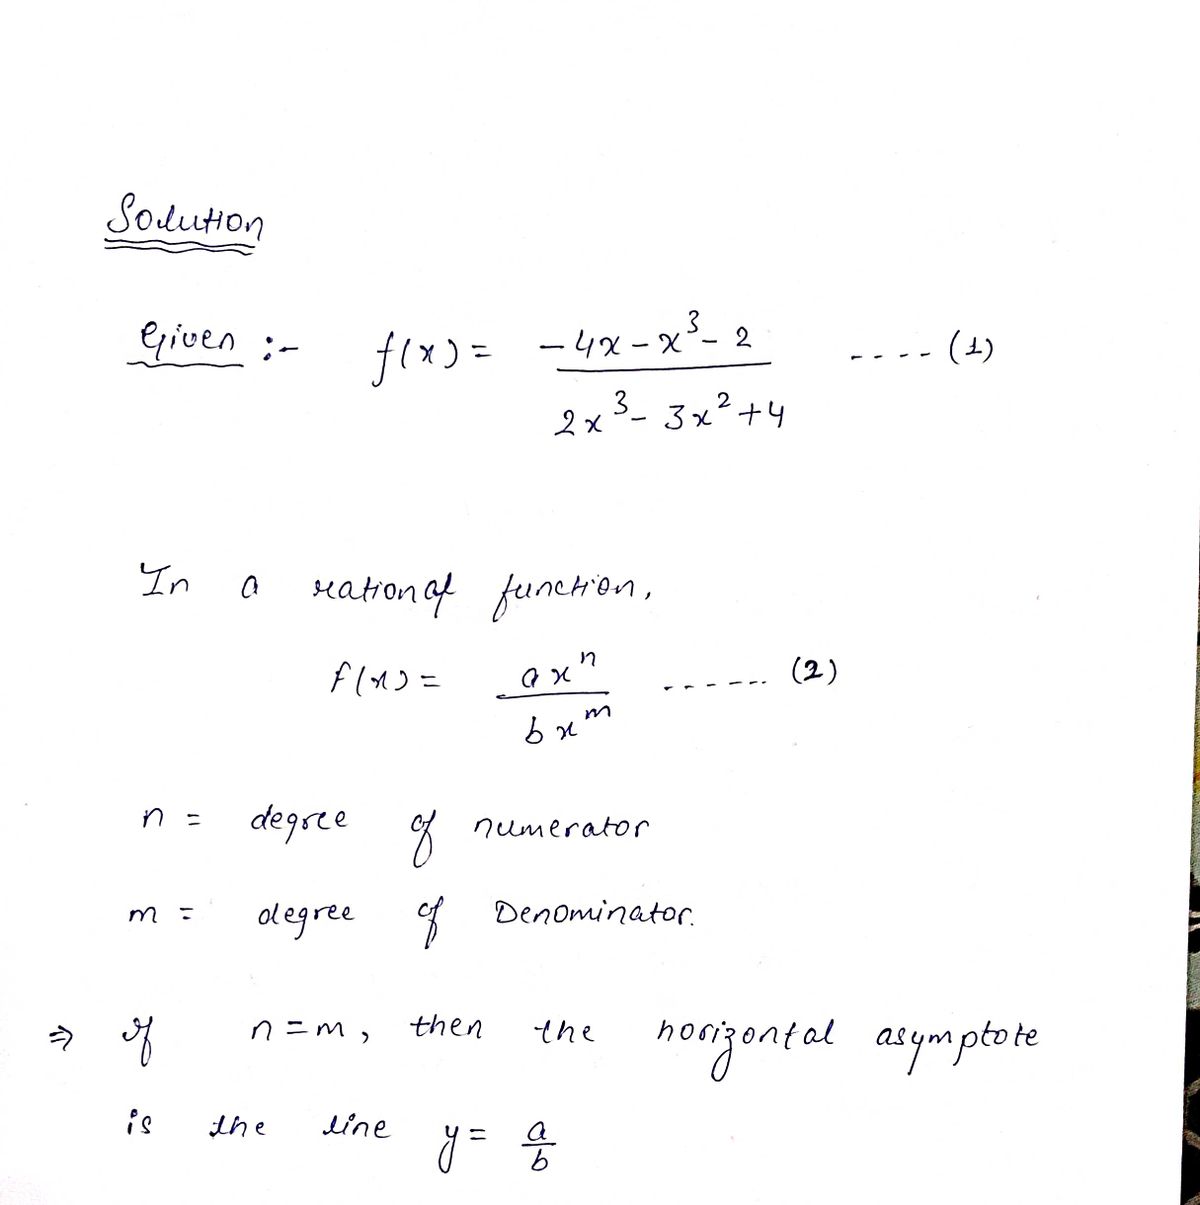 Solution
Given :- f(x) = -4x - x³ - 2 / 2x³ - 3x² + 4 ---- (1)
In a rational function,
f(x) = axⁿ / bxᵐ ------ (2)
n = degree of numerator
m = degree of Denominator.
⇒ If n = m, then the horizontal asymptote
is the line y = a/b